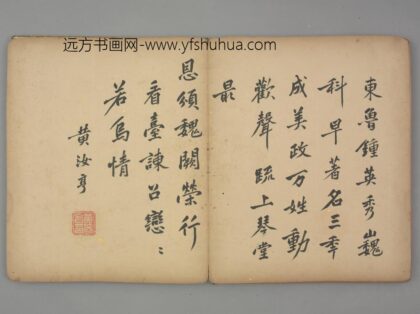 远方书画网-www.yfshuhua.com
東魯鍾英秀巍
科早著名三秊
成美政万姓動
歡聲 疏上琴堂
最
恩頒魏闕榮行
看臺諫召戀〻
若爲情
黄汝亨